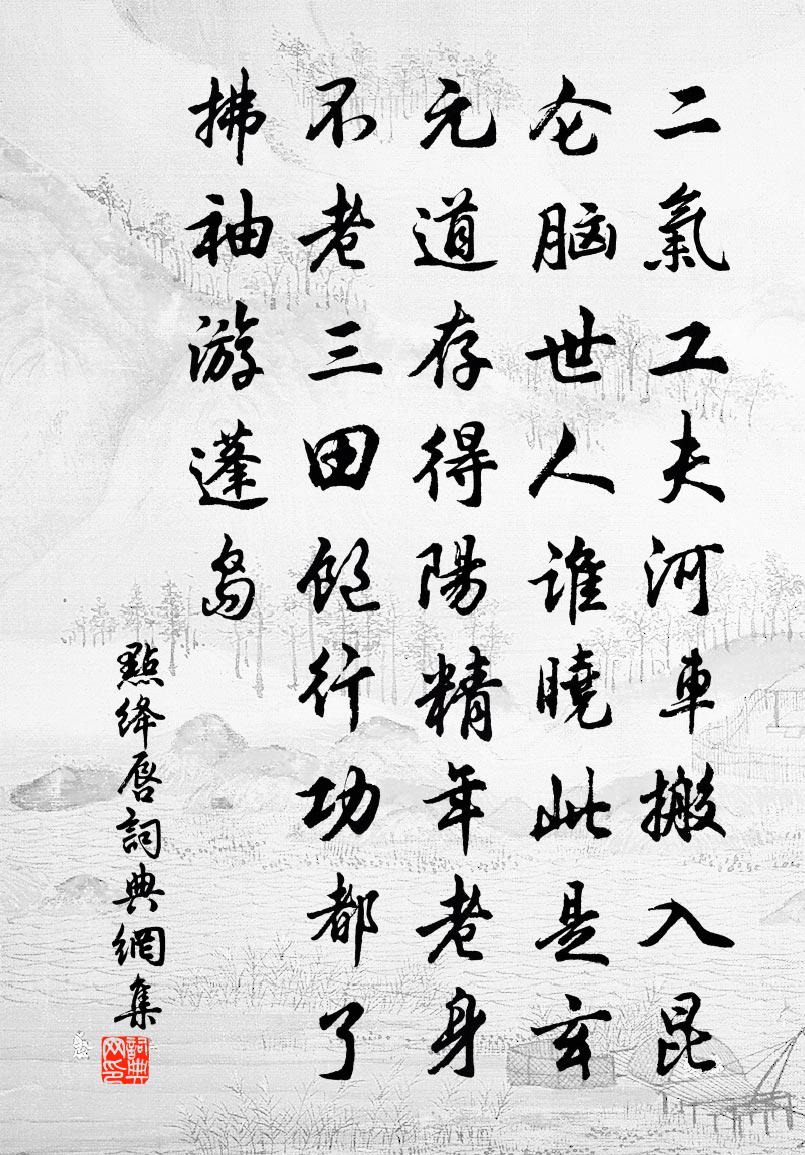 二氣工夫河車搬入昆
仑脑世人谁曉此是玄
元道存得陽精年老身
不老三田飽行功都了
拂袖游蓬岛
點绛唇詞典網集
詞典网印